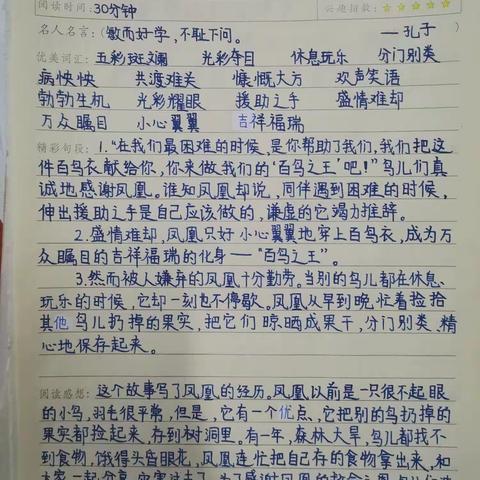 阅读时间:30分钟 兴趣指数:☆☆☆☆☆
名人名言:(敏而好学,不耻下问。 —孔子
优美词汇: 五彩斑斓 光彩夺目 休息玩乐 分门别类
病怏怏 共渡难关 慷慨大方 欢声笑语
勃勃生机 光彩耀眼 援助之手 盛情难却
万众瞩目 小心翼翼 吉祥福瑞
精彩句段: 1."在我们最困难的时候,是你帮助了我们,我们把这
件百鸟衣献给你,你来做我们的'百鸟之王'吧!"鸟儿们真
诚地感谢凤凰。谁知凤凰却说,同伴遇到困难的时候,
伸出援助之手是自己应该做的,谦虚的它竭力推辞。
2.盛情难却,凤凰只好小心翼翼地穿上百鸟衣,成为万
众瞩目的吉祥福瑞的化身——"百鸟之王"。
3.然而被人嫌弃的凤凰十分勤劳。当别的鸟儿都在休息、
玩乐的时候,它却一刻也不停歇。凤凰从早到晚忙着捡拾
其他鸟儿扔掉的果实,把它们晾晒成果干,分门别类、精
心地保存起来。
阅读感想: 这个故事写了凤凰的经历,凤凰以前是一只很不起眼
的小鸟,羽毛很平常,但是,它有一个优点,它把别的鸟扔掉的
果实都捡起来,存到树洞里。有一年,森林大旱,鸟儿都找不
到食物,饿得头昏眼花,凤凰连忙把自己存的食物拿出来,和
大家一起分享,灾害过去了,为了感谢凤凰的救命之恩,鸟儿们